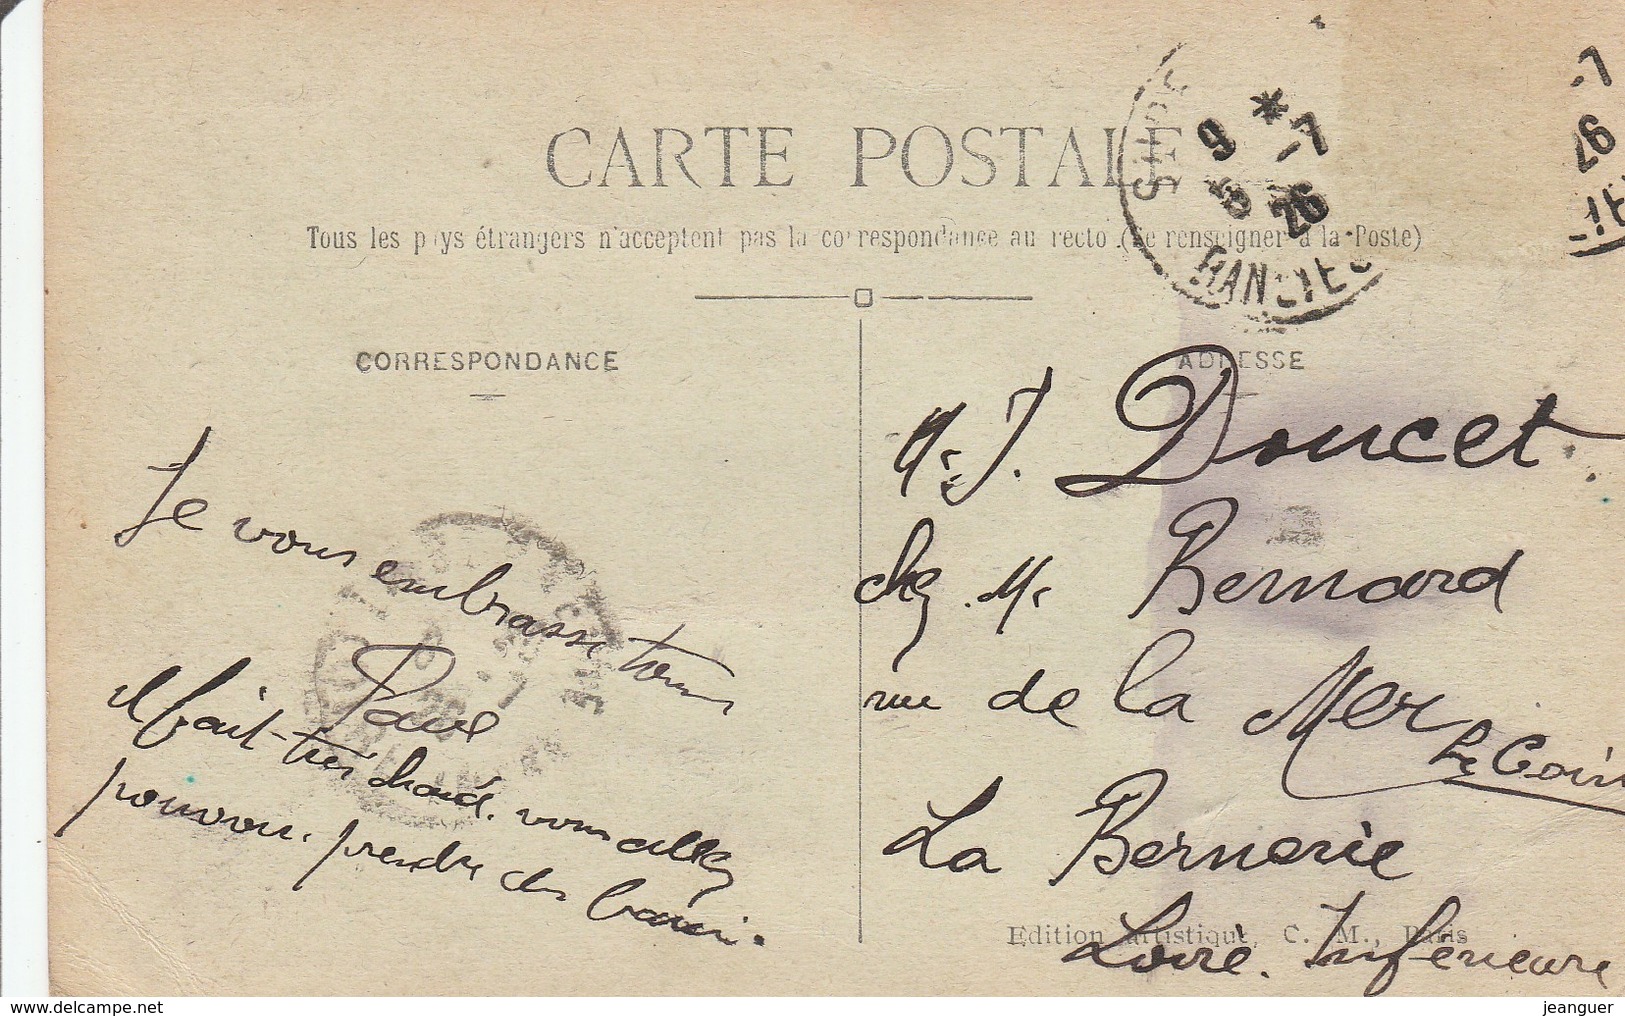 CARTE POSTALE
Tous les pays étrangers n'acceptent pas la correspondance au recto. (Se renseigner à la Poste)
CORRESPONDANCE
ADRESSE
9 * -7
5 26
-7
26
Je vous embrasse tous
Paul
il fait très chaud. vous allez
pouvoir prendre des bains.
J. Doucet
chez Mr Bernard
rue de la Mer
La Bernerie
Loire. Inférieure
Edition artistique, C. M., Paris
jeanguer